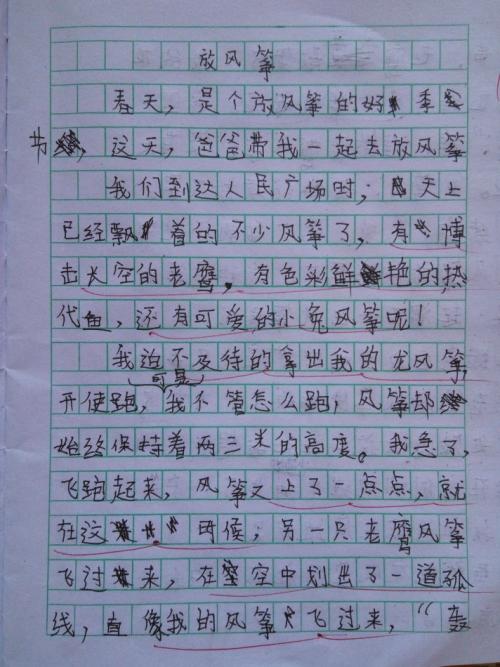 放风筝
春天，是个放风筝的好季
节，这天，爸爸带我一起去放风筝
我们到达人民广场时；天上
已经飘着的不少风筝了，有博
击长空的老鹰，有色彩鲜艳的热
代鱼，还有可爱的小兔风筝呢！
我迫不及待的拿出我的龙风筝，
开使跑，可是我不管怎么跑，风筝却
始终保持着两三米的高度。我急了，
飞跑起来，风筝又上了一点点，就
在这时候；另一只老鹰风筝
飞过来，在空中划出了一道孤
线，直像我的风筝飞过来，“轰